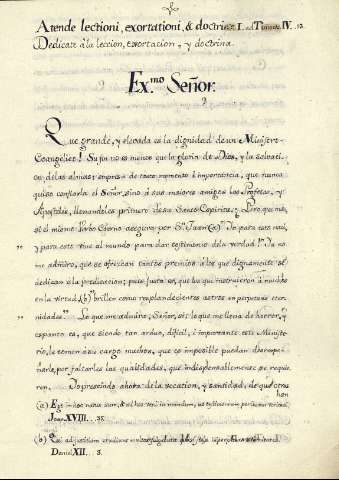 Atende lectioni, exortationi, & doctrinæ I. ad Timoth. IV. 13.
Dedicate à la leccion, exortacion, y doctrina.
Ex.mo Señor.
Que grande, y elevada es la dignidad de un Ministro
Evangelico! Su fin es menos que la gloria de Dios, y la salvaci-
on de las almas; empresa de tanto momento è importancia, que nunca
quiso confiarla el Señor, sino à sus maiores amigos los Profetas, y
Apostoles, llenandoles primero de su Santo Espiritu, y
el mismo Verbo Eterno aseguro por S. Juan (a) Yo para esto nací,
y para esto vine al mundo para dar testimonio de la verdad. Yo no
me admiro, que se ofrezcan tantos premios à los que dignamente se
dedican à la predicacion; pues justo es, que los que instruieron à muchos
en la virtud (b) brillen como resplandecientes astros en perpetuas eter-
nidades. Lo que me admira; Señor, si: lo que me llena de horror, y
espanto es, que siendo tan arduo, dificil, è importante este Ministe-
rio, le tomen à su cargo muchos, que es imposible puedan desempe-
ñarlo, por faltarles las qualidades, que indispensablemente se requie-
ren. Desprescindo ahora de la vocacion, y santidad, de que otros
han
(a) Ego in hoc natus sum, & ad hoc veni in mundum, ut testimonium perhibeam veritati.
Joan. XVIII. 37.
(b) Qui ad justitiam erudiunt multos
Daniel XII. 3.